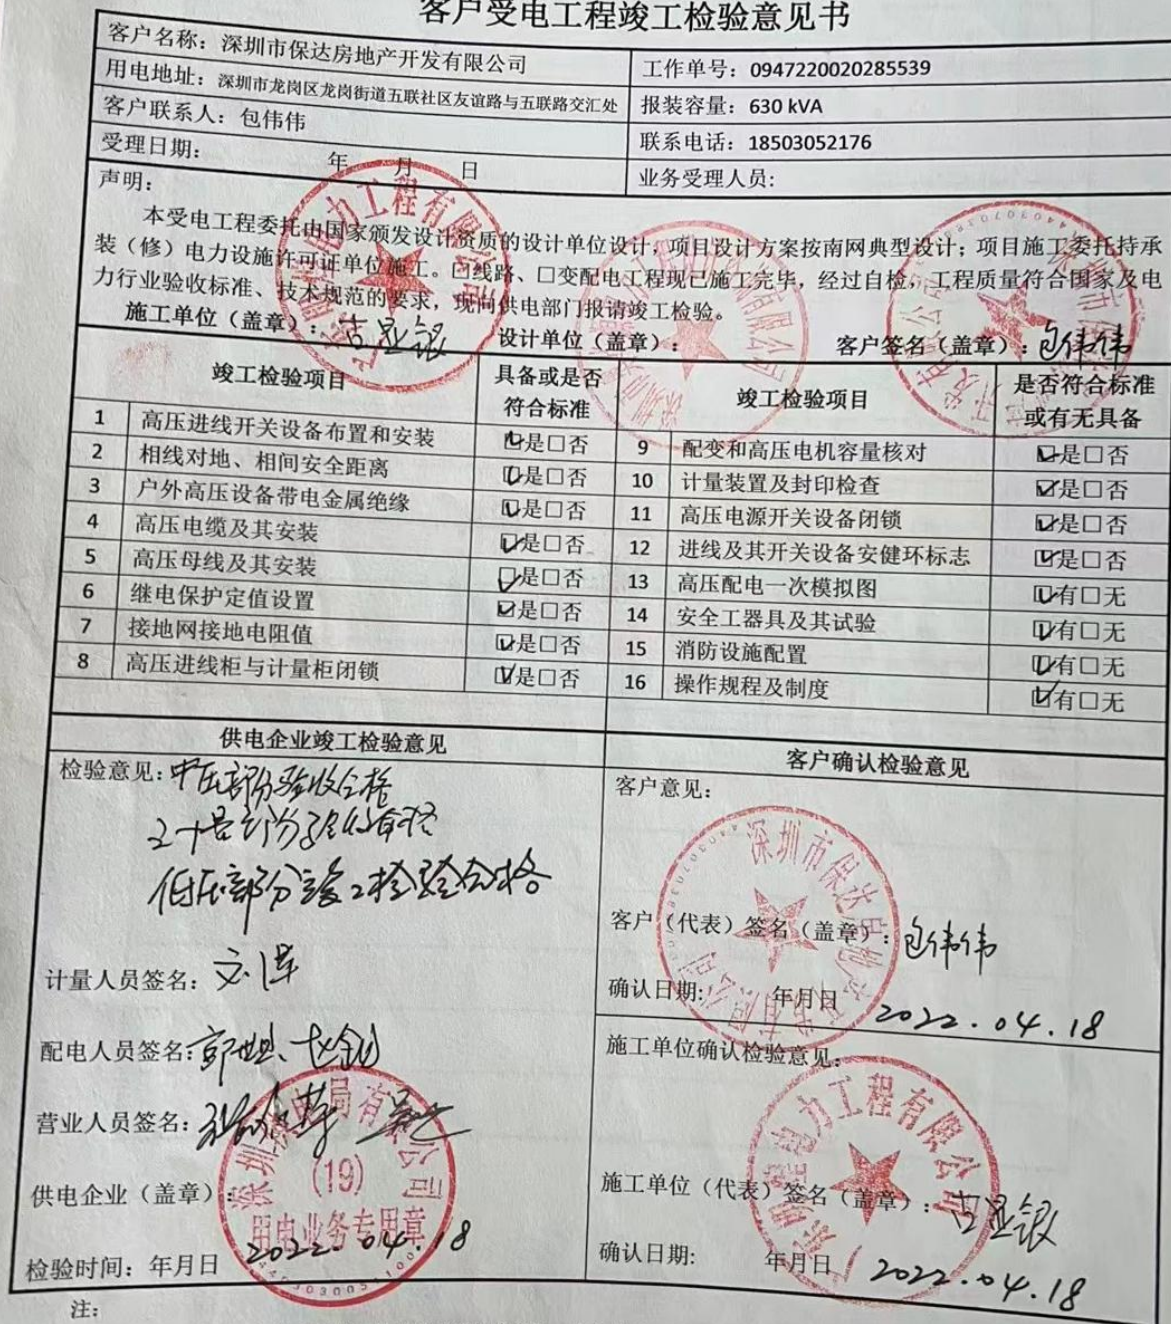 客户受电工程竣工检验意见书
客户名称：深圳市保达房地产开发有限公司
工作单号：0947220020285539
用电地址：深圳市龙岗区龙岗街道五联社区友谊路与五联路交汇处
报装容量：630 kVA
客户联系人：包伟伟
联系电话：18503052176
受理日期： 年 月 日
业务受理人员：
声明：
本受电工程委托由国家颁发设计资质的设计单位设计，项目设计方案按南网典型设计；项目施工委托持承
装（修）电力设施许可证单位施工。☐线路、☐变配电工程现已施工完毕，经过自检，工程质量符合国家及电
力行业验收标准、技术规范的要求，现向供电部门报请竣工检验。
施工单位（盖章）：古显银 设计单位（盖章）： 客户签名（盖章）：包伟伟
竣工检验项目 具备或是否符合标准 竣工检验项目 是否符合标准或有无具备
1 高压进线开关设备布置和安装 ☑是☐否 9 配变和高压电机容量核对 ☑是☐否
2 相线对地、相间安全距离 ☑是☐否 10 计量装置及封印检查 ☑是☐否
3 户外高压设备带电金属绝缘 ☑是☐否 11 高压电源开关设备闭锁 ☑是☐否
4 高压电缆及其安装 ☑是☐否 12 进线及其开关设备安健环标志 ☑是☐否
5 高压母线及其安装 ☑是☐否 13 高压配电一次模拟图 ☑有☐无
6 继电保护定值设置 ☑是☐否 14 安全工器具及其试验 ☑有☐无
7 接地网接地电阻值 ☑是☐否 15 消防设施配置 ☑有☐无
8 高压进线柜与计量柜闭锁 ☑是☐否 16 操作规程及制度 ☑有☐无
供电企业竣工检验意见
检验意见：中压部份验收合格
低压部分竣工检验合格
计量人员签名：
配电人员签名：
营业人员签名：
供电企业（盖章）：
深圳供电局有限公司
(19)
用电业务专用章
检验时间：年月日 2022.04.18
客户确认检验意见
客户意见：
深圳市保达房地产开发有限公司
客户（代表）签名（盖章）：包伟伟
确认日期: 年月日 2022.04.18
施工单位确认检验意见：
电力工程有限公司
施工单位（代表）签名（盖章）：古显银
确认日期: 年月日 2022.04.18
注：